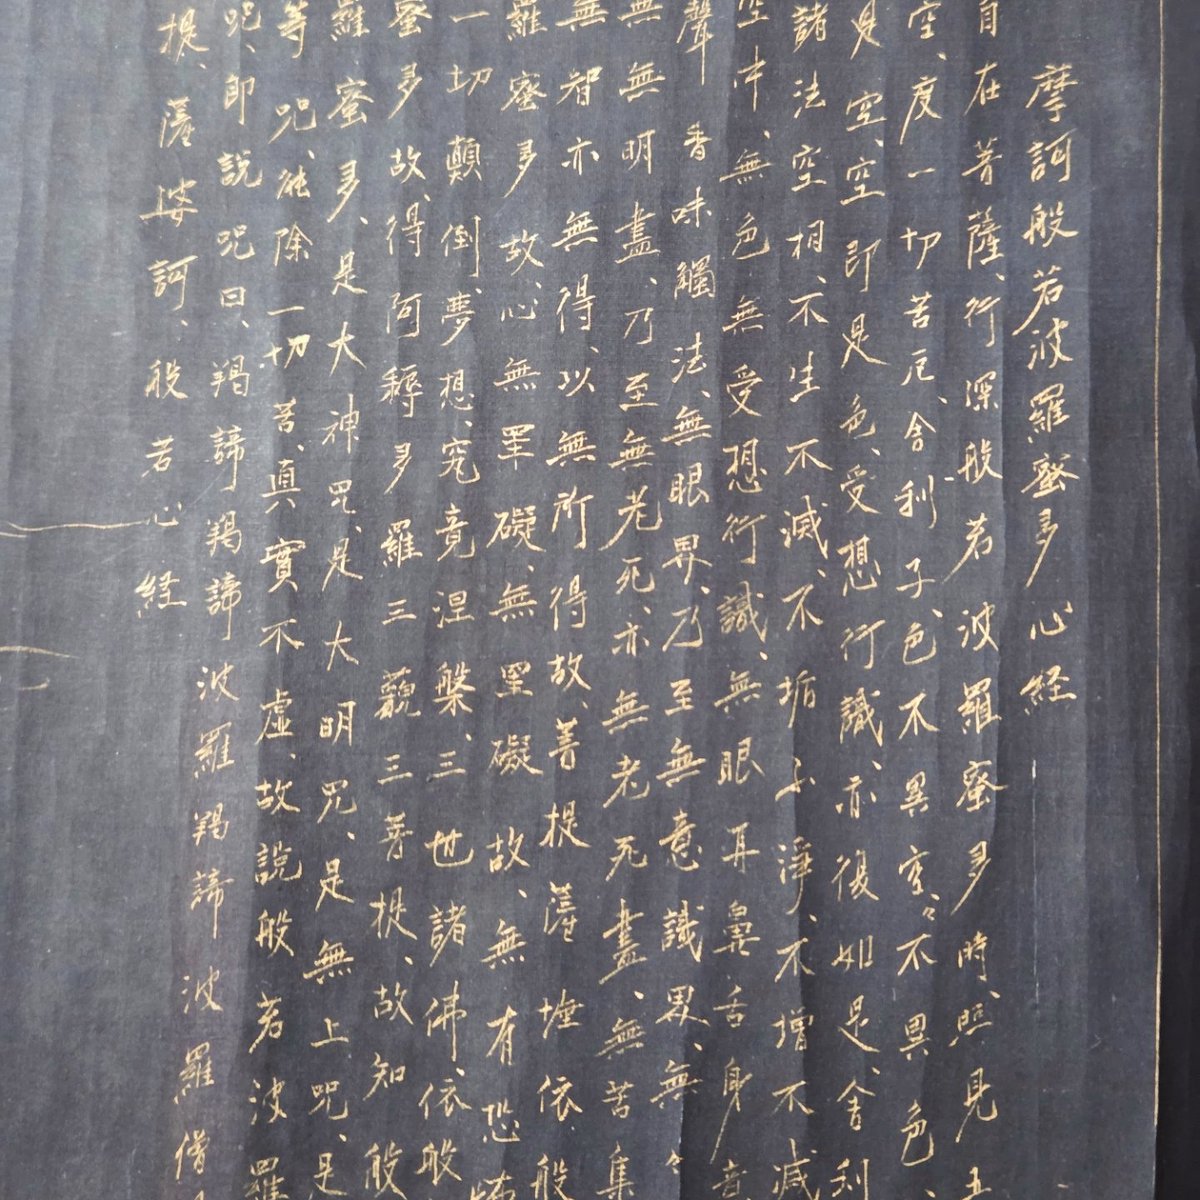 摩訶般若波羅蜜多心経
自在菩薩、行深般若波羅蜜多時、照見五
空、度一切苦厄、舎利子、色不異空、々不異色、
是空、空即是色、受想行識、亦復如是、舎利
諸法空相、不生不滅、不垢不淨、不増不減
空中、無色無受想行識、無眼耳鼻舌身意
聲香味觸法、無眼界、乃至無意識界、無
無無明盡、乃至無老死、亦無老死盡、無苦集
無智亦無得、以無所得故、菩提薩埵依般
羅蜜多故、心無罣礙、無罣礙故、無有恐怖
一切顛倒、夢想、究竟涅槃、三世諸佛、依般
蜜多故、得阿耨多羅三藐三菩提、故知般
羅蜜多、是大神咒、是大明咒、是無上咒、是
等咒、能除一切苦、真實不虚、故説般若波羅
咒、即説咒曰、羯諦羯諦 波羅羯諦 波羅僧
提、薩婆訶、般若心経